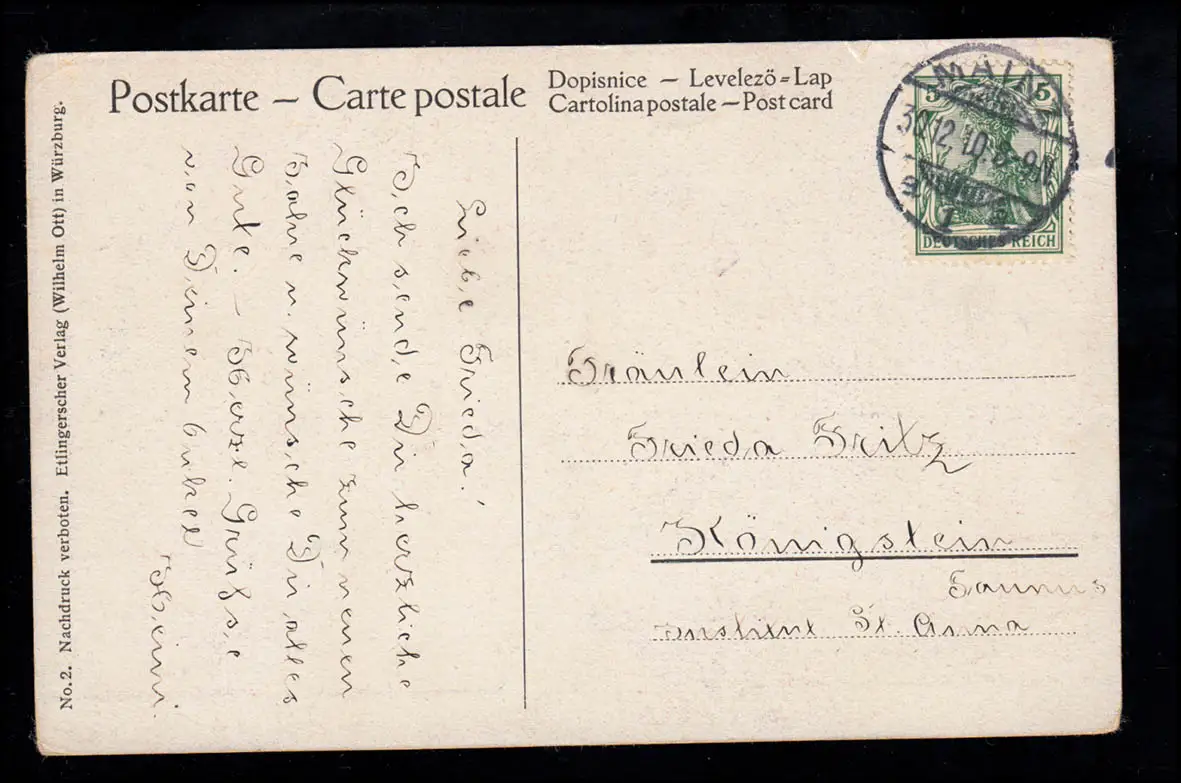 Postkarte – Carte postale
Dopisnice – Levelező=Lap
Cartolina postale – Post card
MAINZ
30.12.10.8-9N
1
5 5
DEUTSCHES REICH
No. 2. Nachdruck verboten. Etlingerscher Verlag (Wilhelm Ott) in Würzburg.
Liebe Frieda!
Ich sende Dir herzliche
Glückwünsche zum neuen
Jahre u. wünsche Dir alles
Gute. – Herzl. Grüße
von Deinem Onkel
Heini.
Fräulein
Frieda Fritz
Königstein
Taunus
Institut St. Anna